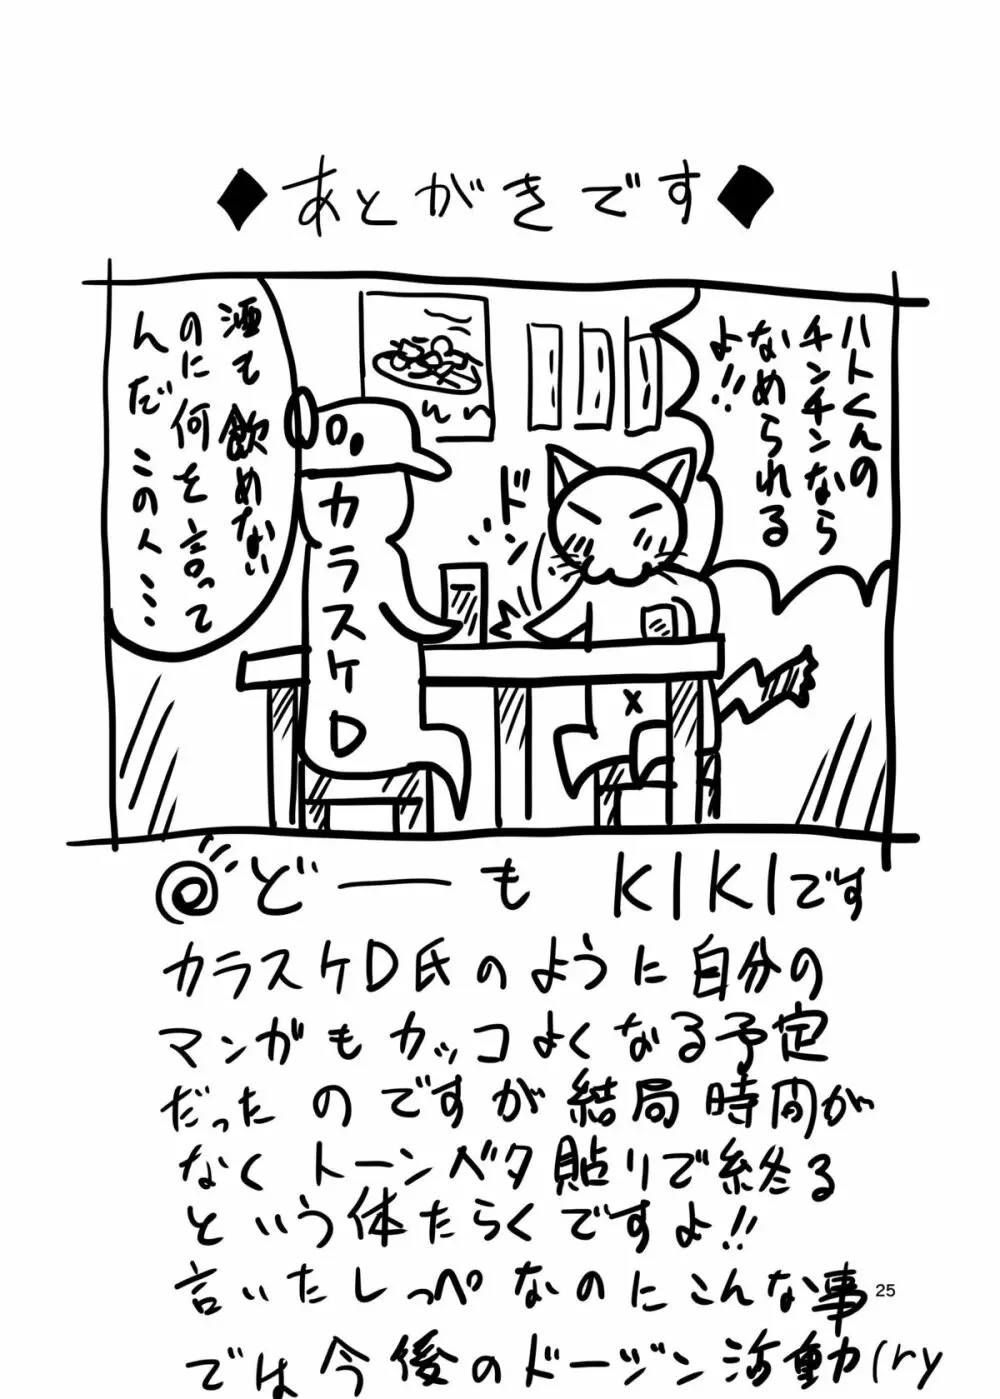 ◆あとがきです◆
ハトくんの
チンチンなら
なめられる
よ!!
酒も飲めない
のに何を言って
んだこの人……
ドン
カラスケD
◎どーも KIKIです
カラスケD氏のように自分の
マンガもカッコよくなる予定
だったのですが結局時間が
なくトーンベタ貼りで終る
という体たらくですよ!!
言いたしっぺなのにこんな事
では今後のドージン活動(ry
25